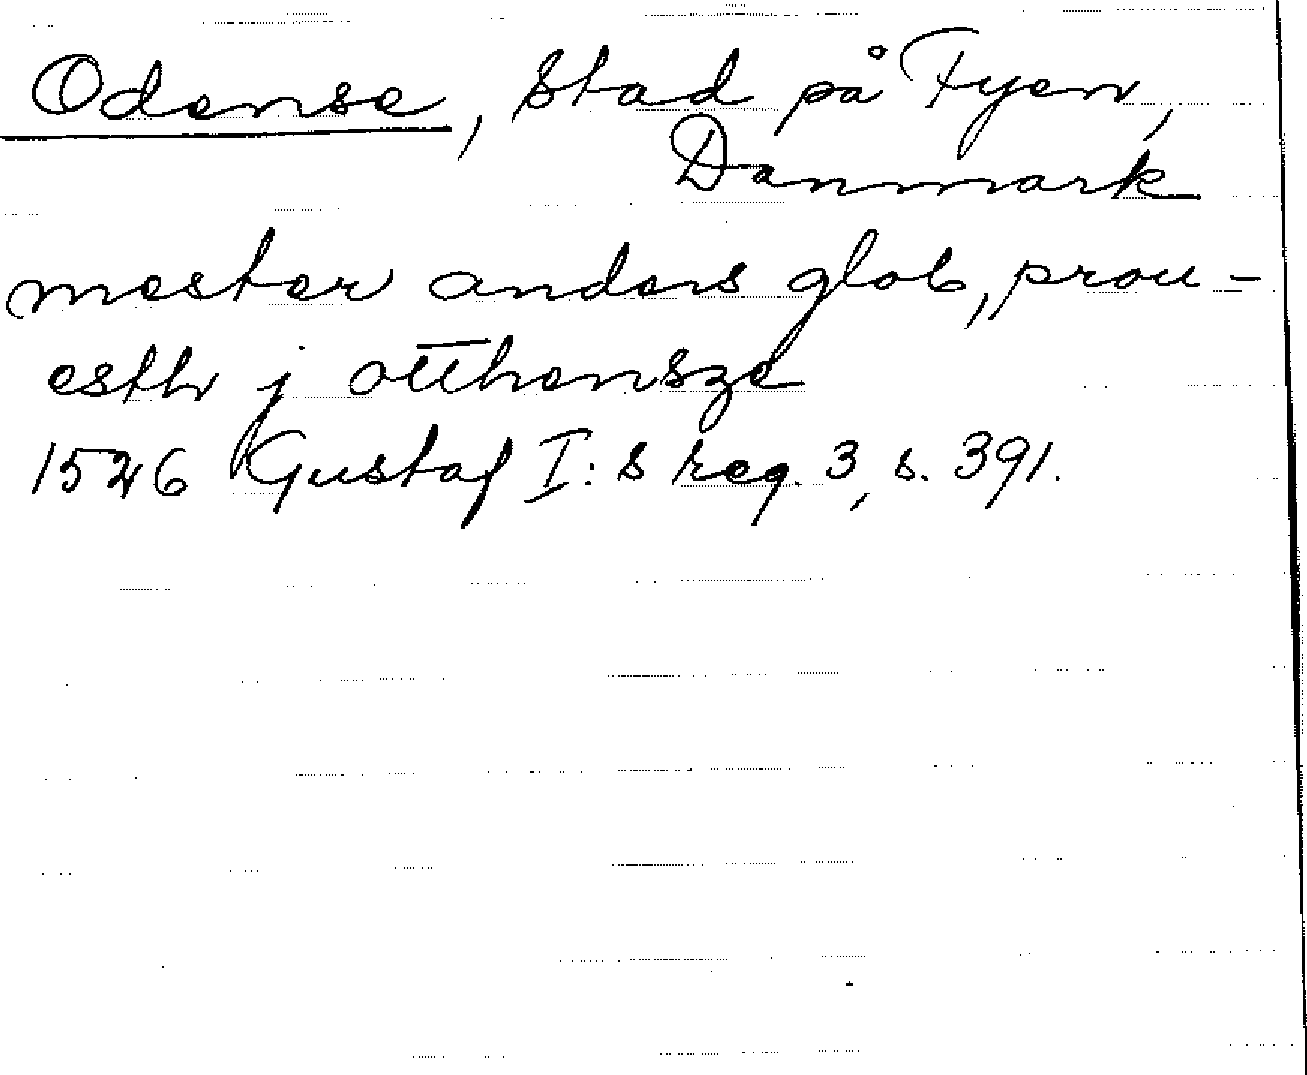 Odense, stad på Fyen,
Danmark
mester anders glob, prou-
esth j otthensze
1526 Gustaf I:s reg. 3, s. 391.